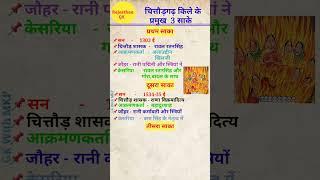 Rajasthan
GK
चित्तौड़गढ़ किले के
प्रमुख 3 साके
प्रथम साका
सन - 1303 ई
चित्तौड़ शासक - रावल रतनसिंह
आक्रमणकर्ता - अलाउद्दीन
खिलजी
जौहर - रानी पद्मिनी और स्त्रियों ने
केसरिया - रावल रतनसिंह और
गोरा,बादल के साथ
दूसरा साका
सन - 1534-35 ई
चित्तौड़ शासक - राणा विक्रमादित्य
आक्रमणकर्ता - बहादुरशाह
जौहर - रानी कर्मावती और स्त्रियों
केसरिया - बाघ सिंह के नेतृत्व में
तीसरा साका